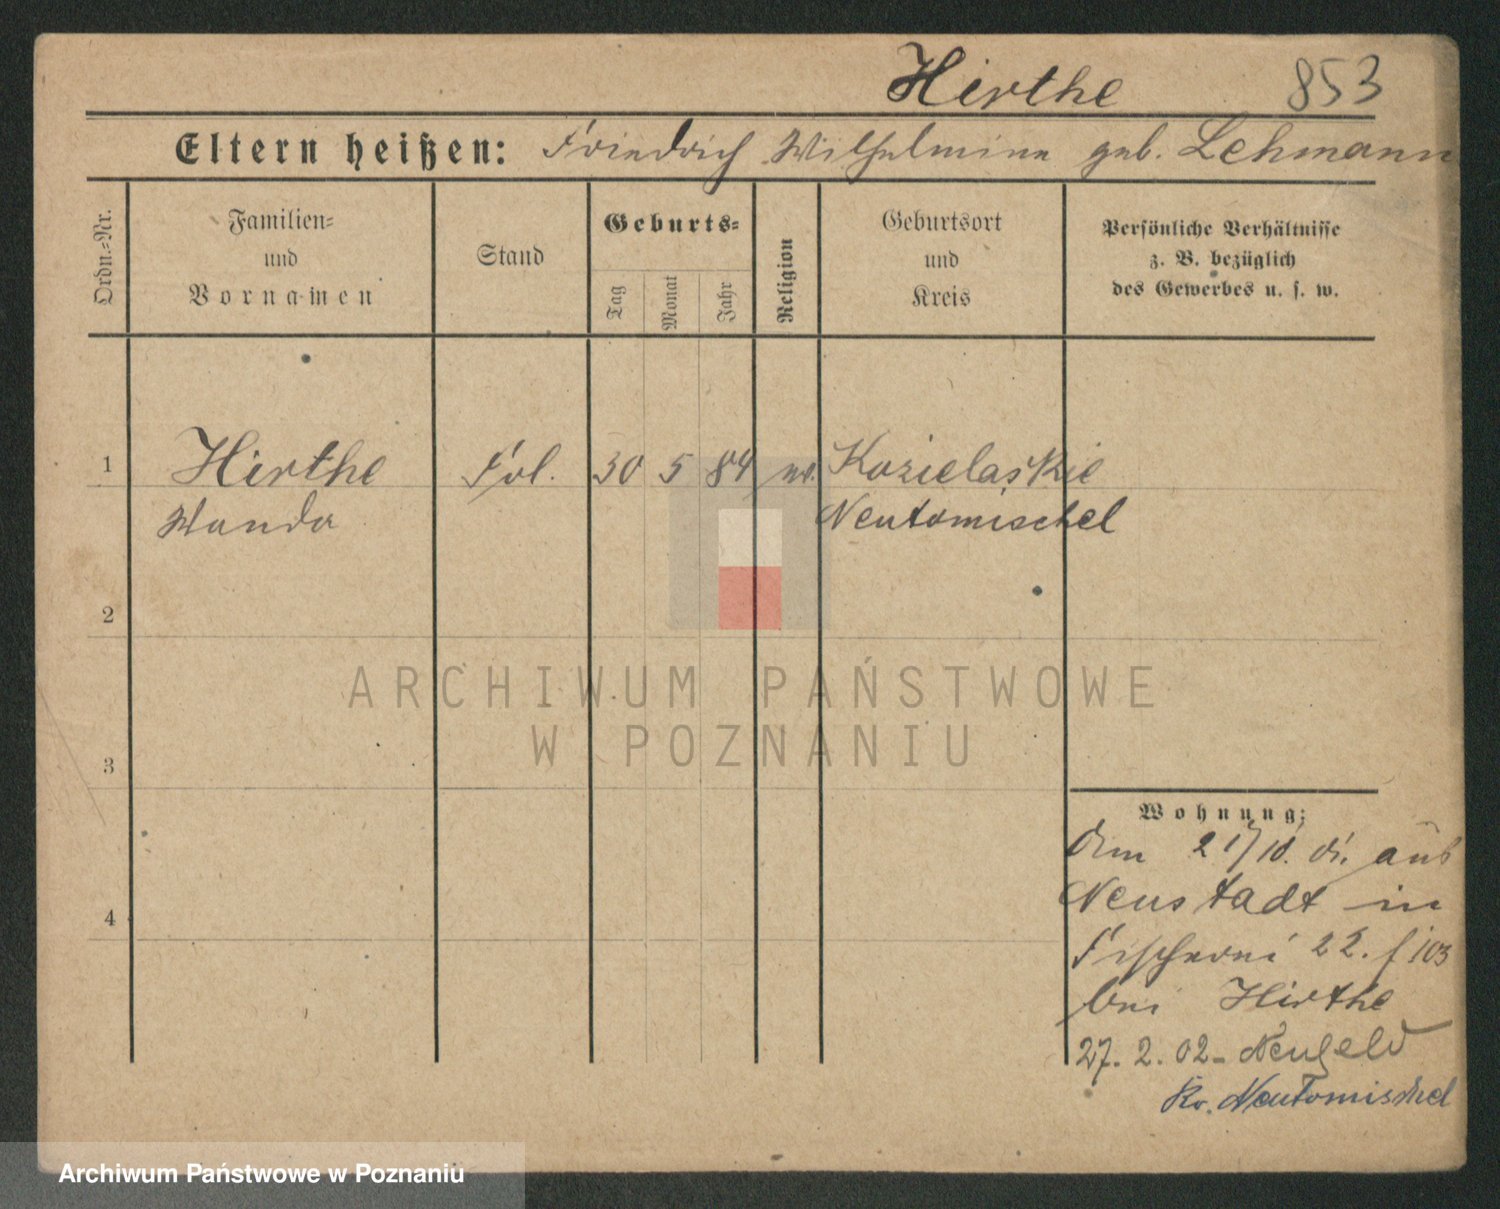 Hirthe 853
Eltern heißen: Friedrich Wilhelmine geb. Lehmann
Ordn.-Nr.
Familien-
und
Vornamen
Stand
Geburts-
Tag
Monat
Jahr
Religion
Geburtsort
und
Kreis
Persönliche Verhältnisse
z. B. bezüglich
des Gewerbes u. s. w.
1 Hirthe Frl. 30 5 84 ev. Kozielaskie
Wanda Neutomischel
2
3
4
ARCHIWUM PAŃSTWOWE
W POZNANIU
Wohnung:
aus
Neustadt in
Fischerei 22.
bei Hirthe
27. 2. 02- Neufeld
Kr. Neutomischel
Archiwum Państwowe w Poznaniu